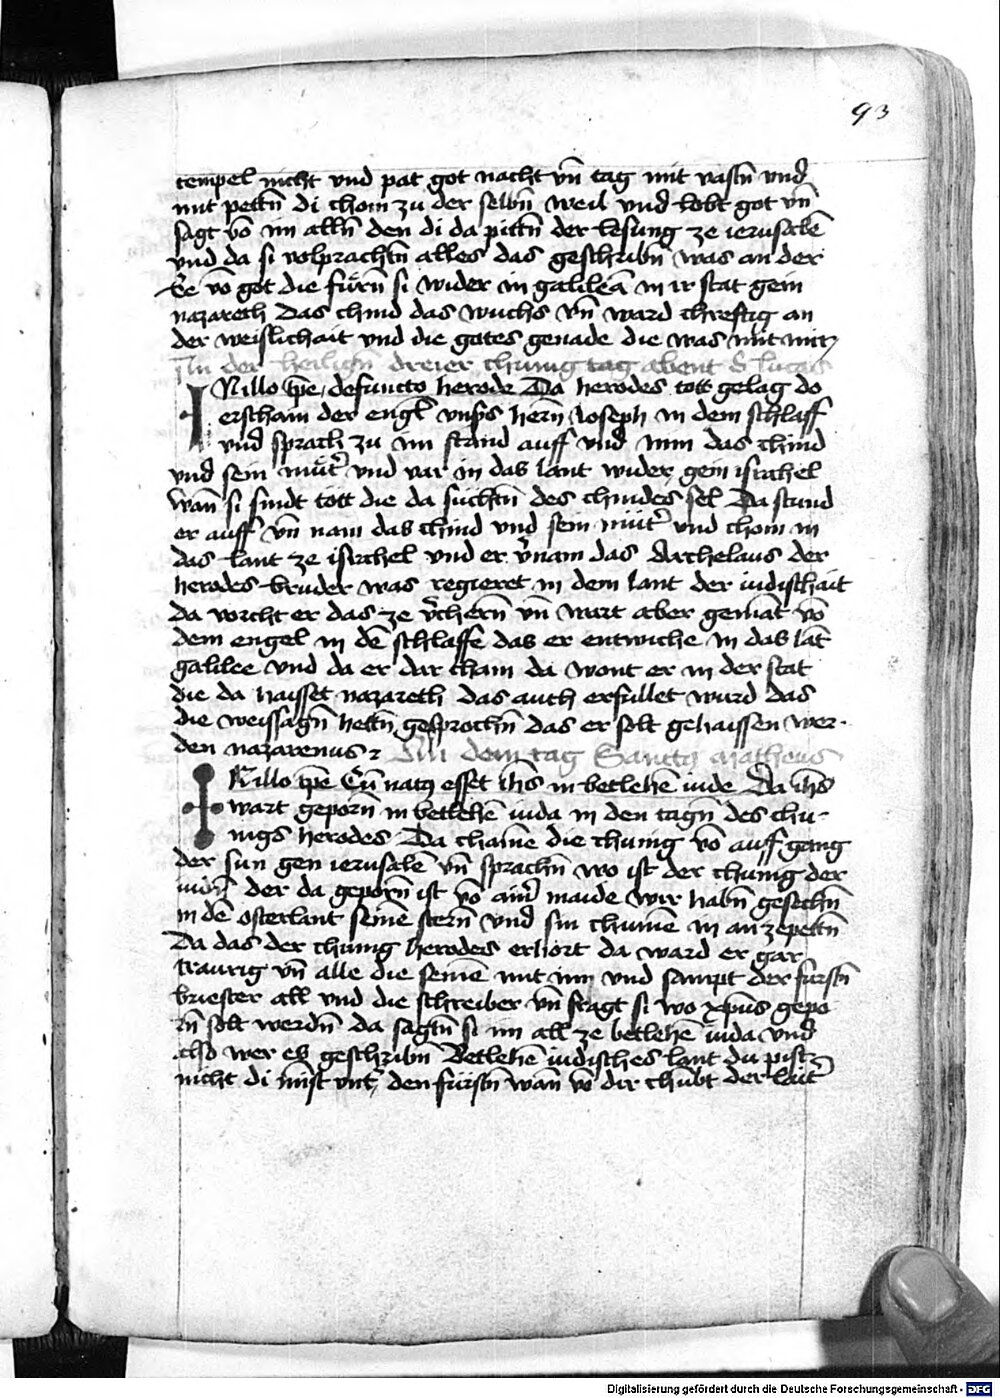 93
tempel nicht vnd pat got nacht vn̄ tag mit vastn̄ vnd
mit pettn̄ di chom zu der selbn̄ weil vnd lobt got vn̄
sagt vō im alln̄ den di da pittn̄ der lesung ze ierusalē
vnd da si volprachtn̄ alles das geschribn̄ was an der
Ee vō got die fůrn̄ si wider in galileā in ir stat gein
nazareth Das chind das wuchs vn̄ ward chreftig an
der weislichait vnd die gotes genade die was mit im
In der heilign̄ dreier chunig tag abent S lucas
IN illo tp̄e defuncto herode Da herodes tott gelag do
erscham der engl̄ vnsʼs hern̄ Joseph in dem schlaff
vnd sprach zu im stand auff vnd nim das chind
vnd sein můtʼ vnd var in das lant wider gein israhel
wan̄ si sindt tott die da suchtn̄ des chindes sel Da stund
er auff vn̄ nam das chind vnd sein můtʼ vnd chom in
das lant ze israhel vnd er vʼnam das Archelaus der
herodes bruder was regieret in dem lant der iudischait
da vorcht er das ze vʼchern̄ vn̄ wart aber gemāt vō
dem engel in dē schlaffe das er entwiche in das lāt
galilee vnd da er dar cham da wont er in der stat
die da haisset nazareth das auch erfullet wurd das
die weissagn̄ hettn̄ gesprochn̄ das er solt gehaissen wer-
den nazarenus An dem tag Sanctus Matheus
IN illo tp̄e Cū natus esset ih̄s in betlehē iude Da ih̄s
wart geporn̄ in betlehē iuda in den tagn̄ des chu-
nigs herodes Da chamē die chunig vō auff gang
der sun gen ierusalē vn̄ sprachn̄ wo ist der chunig der
iudn̄ der da geporn̄ ist vō ainʼ maide wir habn̄ gesechn̄
in dē osterlant seinē stern̄ vnd sin chumē in an zepettn̄
Da das der chunig herodes erhort da ward er gar
traurig vn̄ alle die seinē mit im vnd sampt der fursn̄
briester all vnd die schreiber vn̄ fragt si wo xp̄us gepo
rn̄ solt werdn̄ da sagtn̄ si im all ze betlehē iuda vnd
also wer es geschribn̄ Betlehē iudisches lant du pist
nicht di minst vntʼ den fürstn̄ wan̄ vō dir chūbt der laitʼ
Digitalisierung gefördert durch die Deutsche Forschungsgemeinschaft - DFG